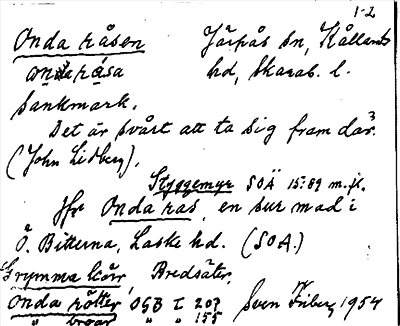 1-2
Onda råsen Järpås sn, Kållands
onda råsa hd, Skarab. l.
sankmark.
Det är svårt att ta sig fram där.
(John Lidberg).
Styggemyr SOÄ 15:89 m.fl.
Jfr Onda ras, en sur mad i
Ö. Bitterna, Laske hd. (SOÄ.)
Grymma kärr, Bredsäter,
Onda rötter OGB I 207 Sven Friberg 1954
" " " 155